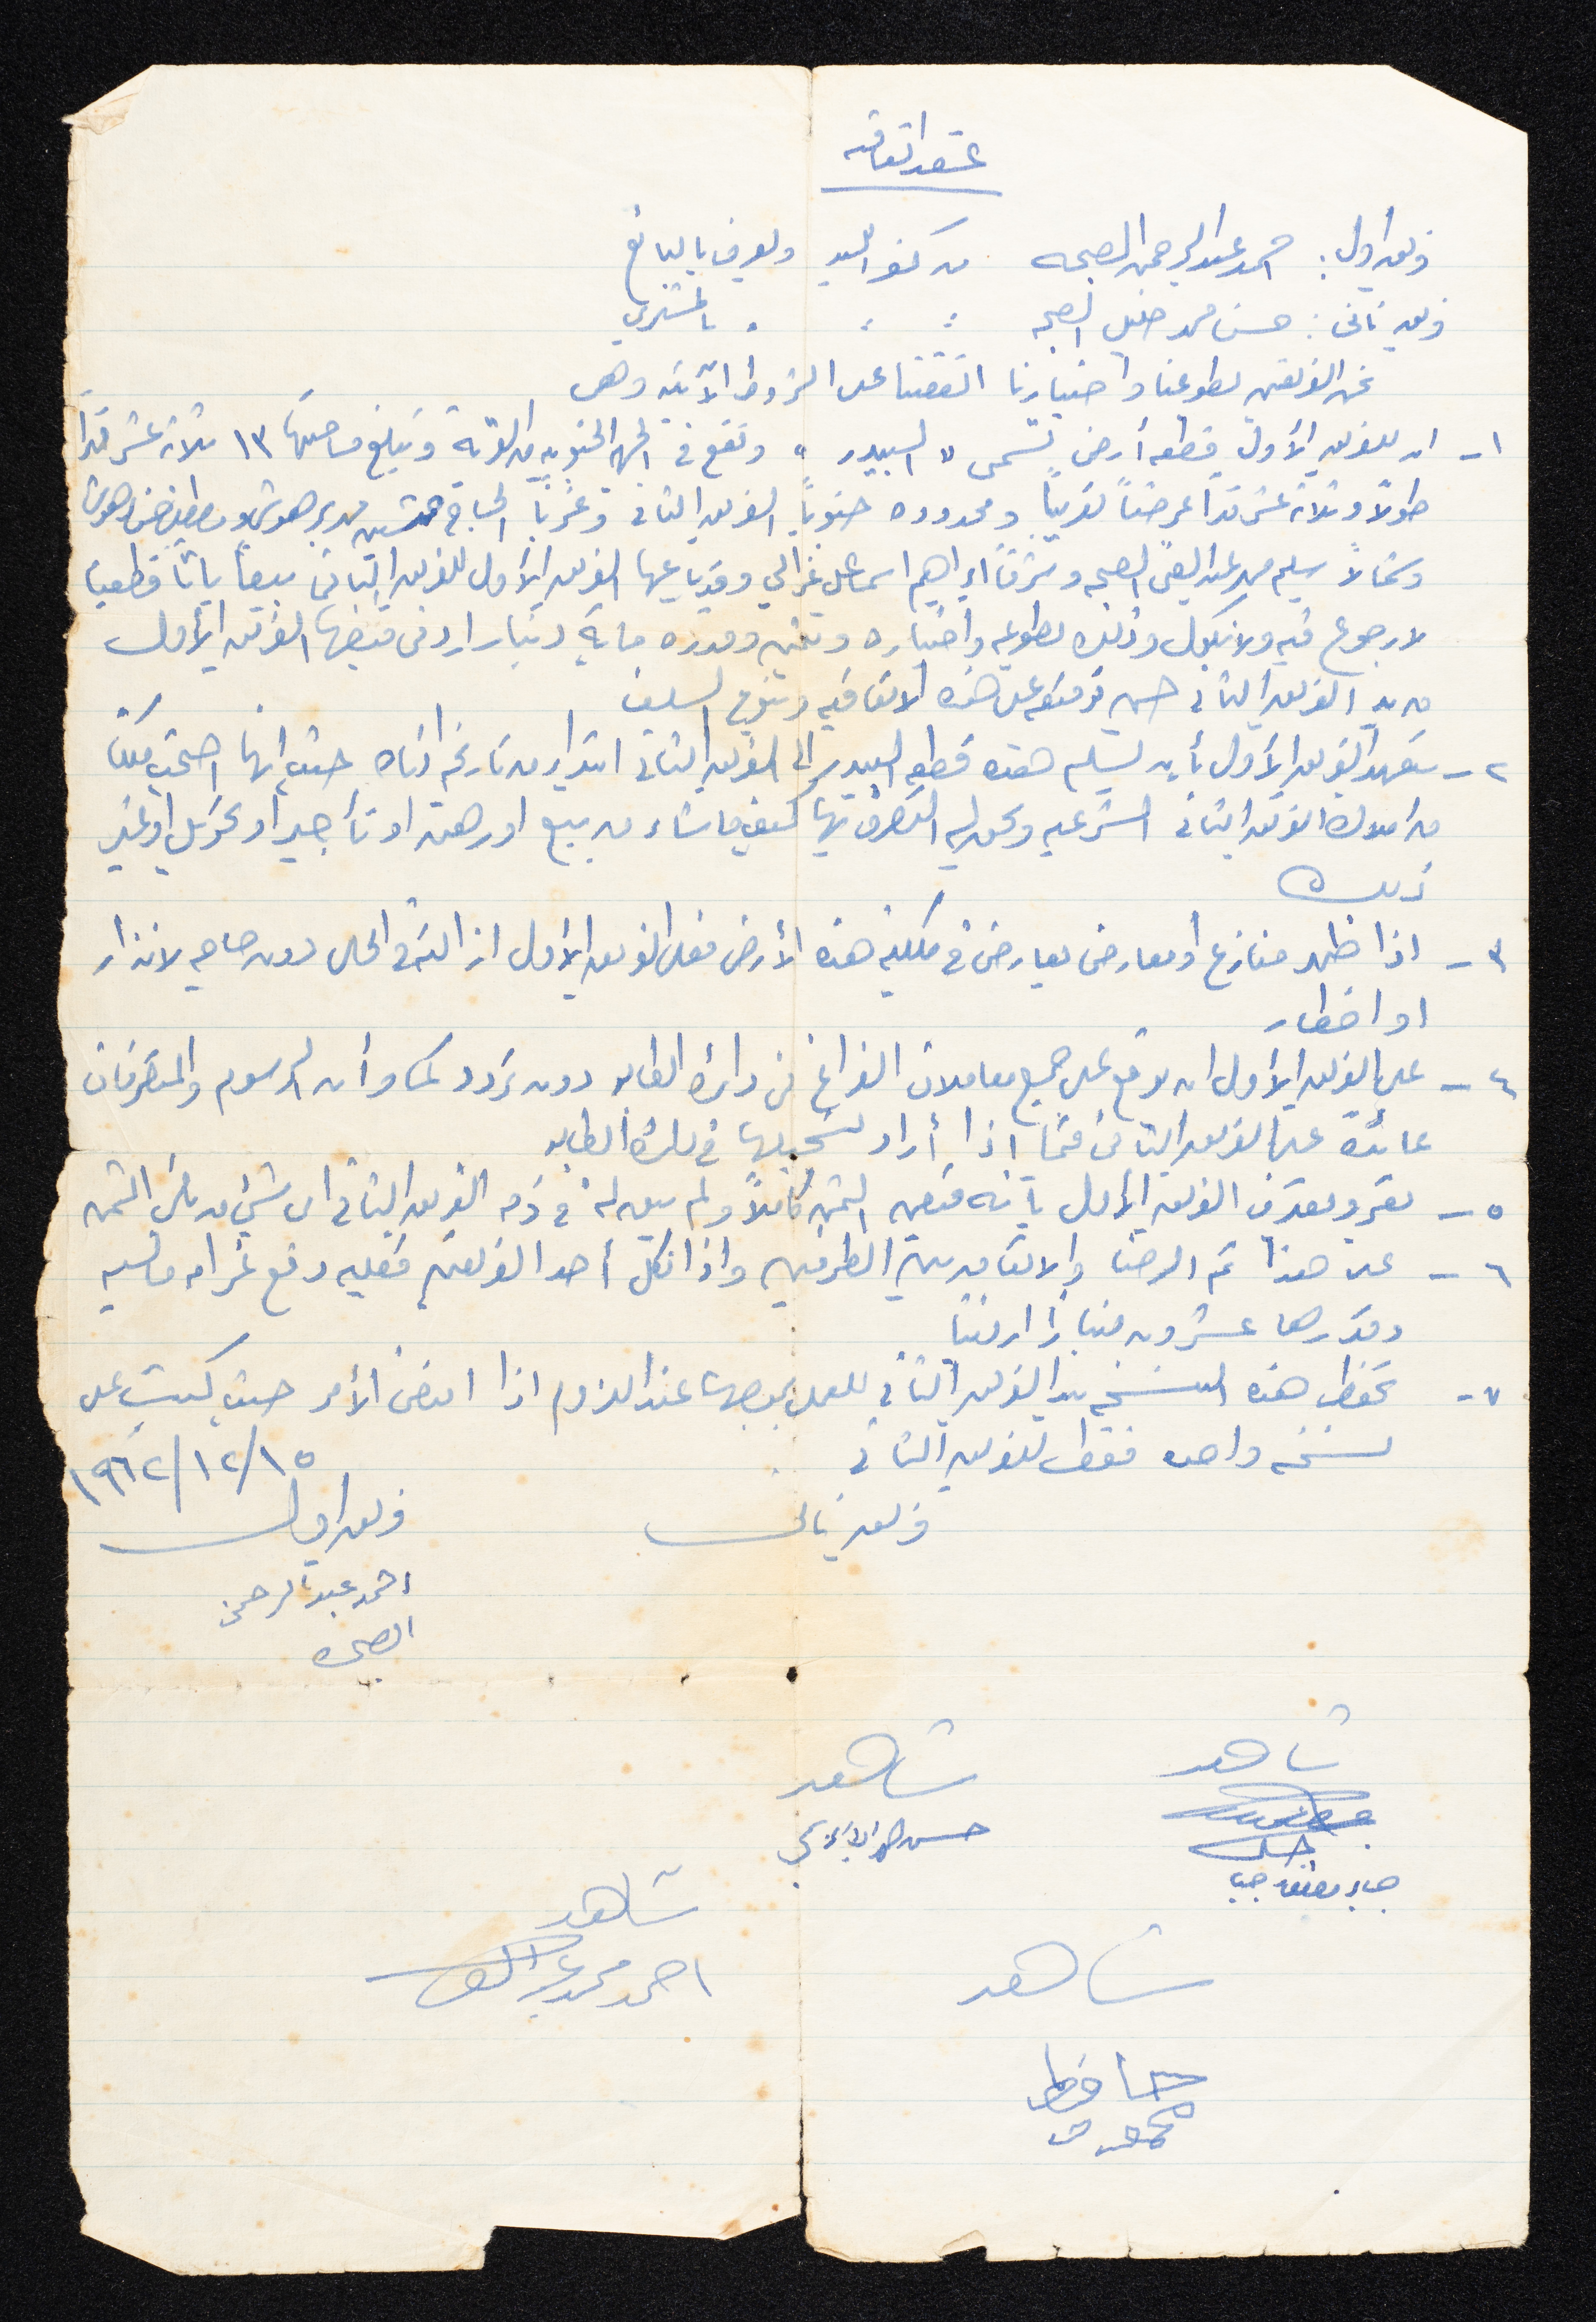 عقد اتفاقيه
فريق اول : احمد عبد الرحمن الصبحه من كفر اللبد ويعرف بالبائع
فريق ثاني : حسن محمد خليل الصبحه : : . بالمشتري
نحن الفريقين بطوعنا واختيارنا اتفقنا على الشروط الآتيه وهي
١- ان للفريق الأول قطعة أرض تسمى " البيدر " وتقع في الجهة الجنوبيه من القرية وتبلغ مساحتها ١٣ ثلاثة عشر قدماً
طولاً وثلاثة عشر قدماً عرضاً تقريباً ومحدوده جنوباً الفريق الثاني وغرباً الحاج
وشمالاً سليم محمد عبد الغني الصبحه وشرقاً ابراهيم اسماعيل غزالي وقد باعها الفريق الأول للفريق الثاني بيعاً باتاً قطعياً
لا رجوع فيه ولا نكول وذلك بطوعه واختياره وبثمن وقدره ماية دينار اردني قبضها الفريق الأول
من يد الفريق الثاني حين توقيعه على هذه الاتفاقيه
٢- يتعهد الفريق الأول بأن يسلم هذه قطعة البيدر الى الفريق الثاني ابتداء من تاريخه ادناه حيث انها اصبحت ملكاً
من املاك الفريق الثاني الشرعيه ويحق له التصرف بها كيف ما شاء من بيع او رهن او تأجير او تحويل او غير
ذلك
٣- اذا ظهر منازع او معارض يعارض في ملكية هذه الأرض فعلى الفريق الأول ازالته في الحال دون حاجه لانذار
او اخطار
٤- على الفريق الأول ان يوقع على جميع معاملات الفراغ في دائرة الطابو دون تردد كما وأن الرسوم والمصرفات
عائدة على الفريق الثاني فيما اذا أراد تسجيلها في دائرة الطابو
٥- يقر ويعترف الفريق الأول بأنه قبض الثمن كاملاً ولم يبق له في ذمة الفريق الثاني اي شيء من تلك الثمن
٦- على هذا تم الرضا والاتفاق بين الطرفين واذا نكل أحد الفريقين فعليه دفع غرامه ماليه
وقدرها عشرون ديناراً اردنياً
٧- تحفظ هذه النسخه بيد الفريق الثاني للعمل بموجبها عند اللزوم اذا اقتضى الأمر حيث كتبت على
نسخه واحده فقط للفريق الثاني
١٩٦٢/١٢/١٥
فريق ثاني
فريق اول
احمد عبد الرحمن
الصبحه
شاهد
شاهد
حسن
شاهد
احمد محمد
شاهد
حافظ
محمود